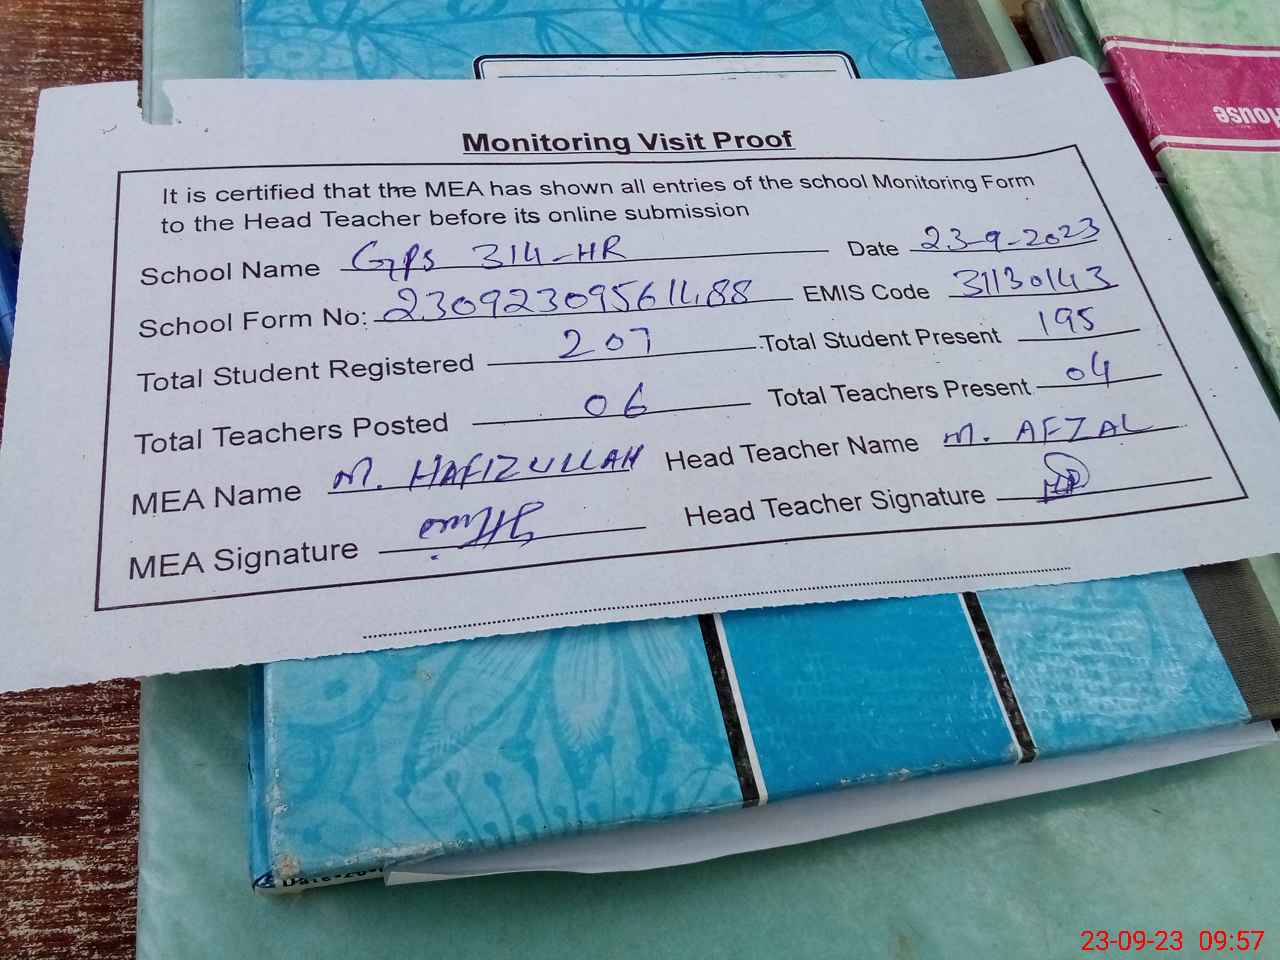 House
Monitoring Visit Proof
It is certified that the MEA has shown all entries of the school Monitoring Form
to the Head Teacher before its online submission
School Name GPS 314-HR Date 23-9-2023
School Form No: 23092309561488 EMIS Code 31130143
Total Student Registered 207 Total Student Present 195
Total Teachers Posted 06 Total Teachers Present 04
MEA Name M. HAFIZULLAH Head Teacher Name M. AFZAL
MEA Signature Head Teacher Signature
23-09-23 09:57